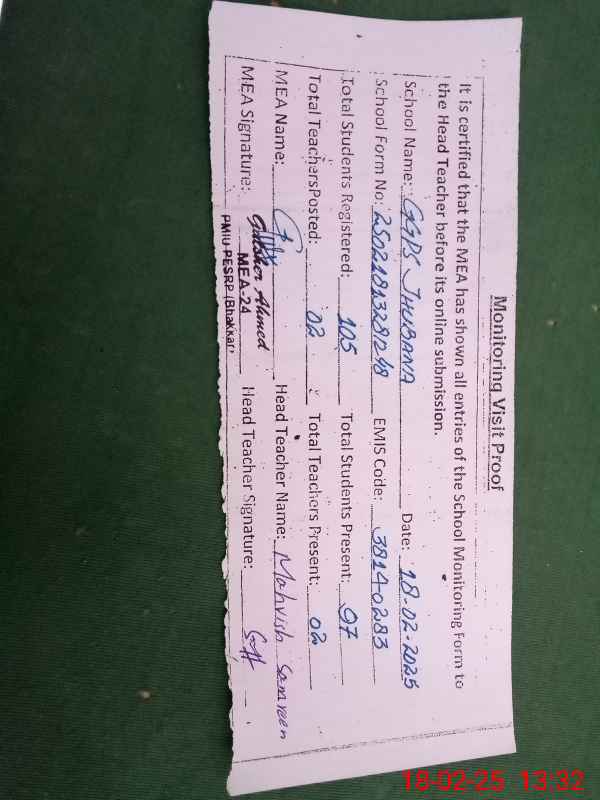 Monitoring Visit Proof
It is certified that the MEA has shown all entries of the School Monitoring Form to
the Head Teacher before its online submission.
School Name: GGPS JHUBANA Date: 18.02.2025
School Form No: 25021813281248 EMIS Code: 38140283
Total Students Registered: 105 Total Students Present: 97
Total TeachersPosted: 02 Total Teachers Present: 02
MEA Name: Head Teacher Name: Mahvish Samreen
MEA Signature: Ahmed Head Teacher Signature:
MEA-24
PMIU-PESRP (Bhakkar)
18-02-25 13:32